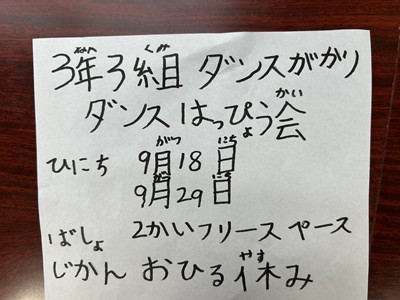 3年3組 ダンスがかり
ダンスはっぴょう会
ひにち 9月18日
9月29日
ばしょ 2かいフリースペース
じかん おひる休み